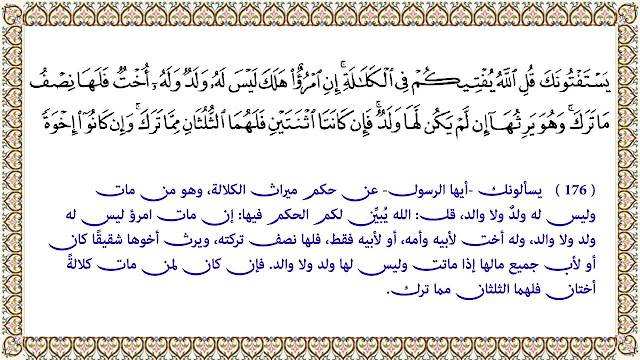 يَسْتَفْتُونَكَ قُلِ ٱللَّهُ يُفْتِيكُمْ فِى ٱلْكَلَـٰلَةِ ۚ إِنِ ٱمْرُؤٌا۟ هَلَكَ لَيْسَ لَهُۥ وَلَدٌ وَلَهُۥٓ أُخْتٌ فَلَهَا نِصْفُ
مَا تَرَكَ ۚ وَهُوَ يَرِثُهَآ إِن لَّمْ يَكُن لَّهَا وَلَدٌ ۚ فَإِن كَانَتَا ٱثْنَتَيْنِ فَلَهُمَا ٱلثُّلُثَانِ مِمَّا تَرَكَ ۚ وَإِن كَانُوٓا۟ إِخْوَةً
( 176 ) يسألونك -أيها الرسول- عن حكم ميراث الكلالة، وهو من مات
وليس له ولدٌ ولا والد، قل: الله يُبيِّن لكم الحكم فيها: إن مات امرؤ ليس له
ولد ولا والد، وله أخت لأبيه وأمه، أو لأبيه فقط، فلها نصف تركته، ويرث أخوها شقيقًا كان
أو لأب جميع مالها إذا ماتت وليس لها ولد ولا والد. فإن كان لمن مات كلالةً
أختان فلهما الثلثان مما ترك.